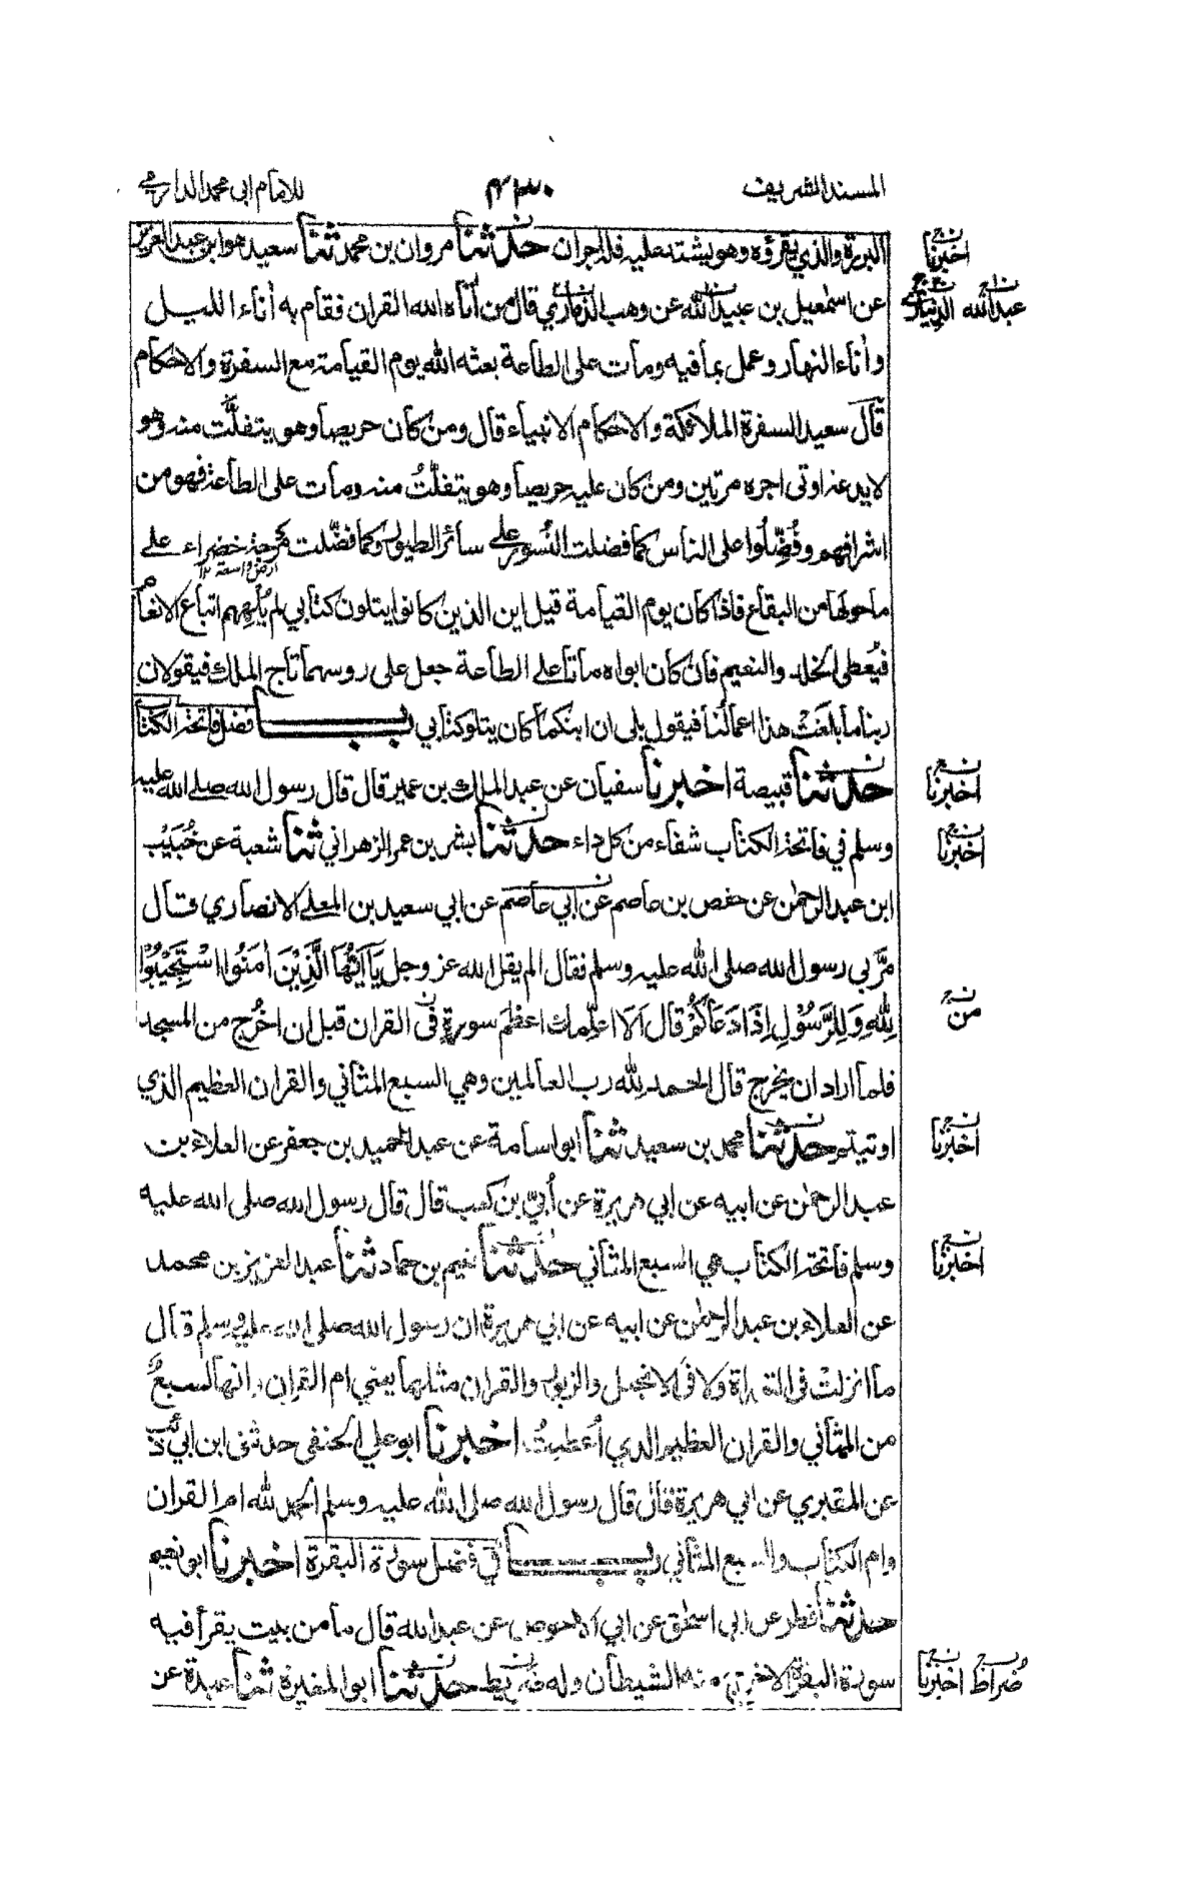 المسند الشريف ٤٣٠ للامام ابى محمد الدارمي
البررة والذي يقرؤه وهو يشتد عليه فله اجران حدثنا مروان بن محمد ثنا سعيد هو ابن عبد العزيز
اخبرنا
عن اسمعيل بن عبيد الله عن وهب الذماري قال من أتاه الله القران فقام به أناء الليل
عبد الله
وأناء النهار وعمل بما فيه ومات على الطاعة بعثه الله يوم القيامة مع السفرة والاحكام
قال سعيد السفرة الملائكة والاحكام الانبياء قال ومن كان حريصا وهو يتفلّت منه وهو
لا يدعه اوتى اجره مرتين ومن كان عليه حريصا وهو يتفلتُ منه ومات على الطاعة فهو من
اشرافهم وفُضِّلُوا على الناس كما فضلت النُسور على سائر الطيور وكما فضّلت مرجة خضراء على
ارض واسعة ١٢
ما حولها من البقاع فاذا كان يوم القيامة قيل اين الذين كانوا يتلون كتابي لم يُلْهِهِم اتباع الانعام
فيُعطى الخلد والنعيم فان كان ابواه ماتا على الطاعة جعل على روسهما تاج الملك فيقولان
ربنا ما بلغَتْ هذا اعمالُنا فيقول بلى ان ابنكما كان يتلو كتابي باب فضل فاتحة الكتاب
حدثنا قبيصة اخبرنا سفيان عن عبد الملك بن عمير قال قال رسول الله صلى الله عليه
اخبرنا
وسلم في فاتحة الكتاب شفاء من كل داء حدثنا بشر بن عمر الزهراني ثنا شعبة عن خُبَيْب
اخبرنا
ابن عبد الرحمٰن عن حفص بن عاصم عن ابي عاصم عن ابي سعيد بن المعلى الانصاري قال
مرّ بي رسول الله صلى الله عليه وسلم فقال الم يقل الله عز وجل يَا اَيُّهَا الَّذِيْنَ اٰمَنُوا اسْتَجِيْبُوْا
لِلّٰهِ وَلِلرَّسُوْلِ اِذَا دَعَاكُمْ قال اَلَا اعلّمك اعظم سورة فى القران قبل ان اخرُج من المسجد
من
فلما اراد ان يخرج قال الحمد لله رب العالمين وهي السبع المثاني والقران العظيم الذي
اوتيتم حدثنا محمد بن سعيد ثنا ابو اسامة عن عبد الحميد بن جعفر عن العلاء بن
اخبرنا
عبد الرحمٰن عن ابيه عن ابي هريرة عن اُبيّ بن كعب قال قال رسول الله صلى الله عليه
وسلم فاتحة الكتاب هي السبع المثاني حدثنا نعيم بن حماد ثنا عبد العزيز بن محمد
اخبرنا
عن العلاء بن عبد الرحمٰن عن ابيه عن ابي هريرة ان رسول الله صلى الله عليه وسلم قال
ما انزلتْ فى التوراة ولا فى الانجيل والزبور والقران مثلها يعني ام القران وانها لسبعٌ
من المثاني والقران العظيم الذي اُعطيتُ اخبرنا ابو علي الحنفى حدثنى ابن ابي ذئب
عن المقبري عن ابي هريرة قال قال رسول الله صلى الله عليه وسلم الحمد لله ام القران
وام الكتاب والسبع المثاني باب في فضل سورة البقرة اخبرنا ابو نعيم
حدثنا فطر عن ابى اسحٰق عن ابي الاحوص عن عبد الله قال ما من بيت يقرأ فيه
سورة البقرة الا خرج منه الشيطان وله ضريط حدثنا ابو المغيرة ثنا عبدة عن
ضراط اخبرنا